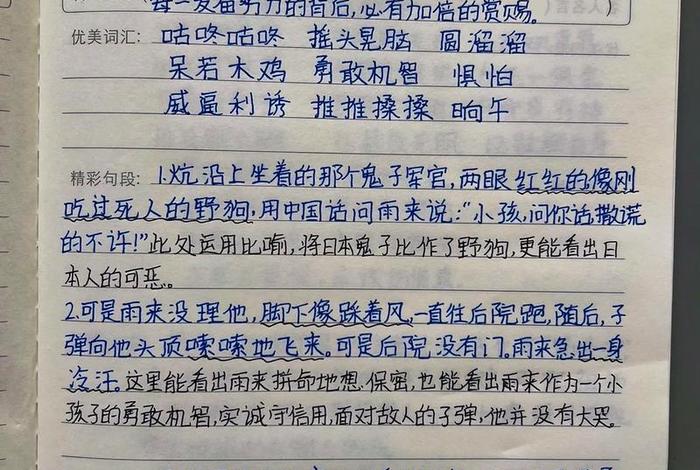 每一发奋努力的背后,必有加倍的赏赐。
优美词汇: 咕咚咕咚 摇头晃脑 圆溜溜
呆若木鸡 勇敢机智 惧怕
威逼利诱 推推搡搡 晌午
精彩句段: 1.炕沿上坐着的那个鬼子军官,两眼红红的像刚
吃过死人的野狗,用中国话问雨来说:“小孩,问你话,撒谎
的不许!”此处运用比喻,将日本鬼子比作了野狗,更能看出日
本人的可恶。
2.可是雨来没理他,脚下像踩着风,一直往后院跑,随后,子
弹向他头顶嗦嗦地飞来。可是后院没有门。雨来急出一身
冷汗。这里能看出雨来拼命地想保密,也能看出雨来作为一个小
孩子的勇敢机智,实诚守信用,面对故人的子弹,他并没有大哭。